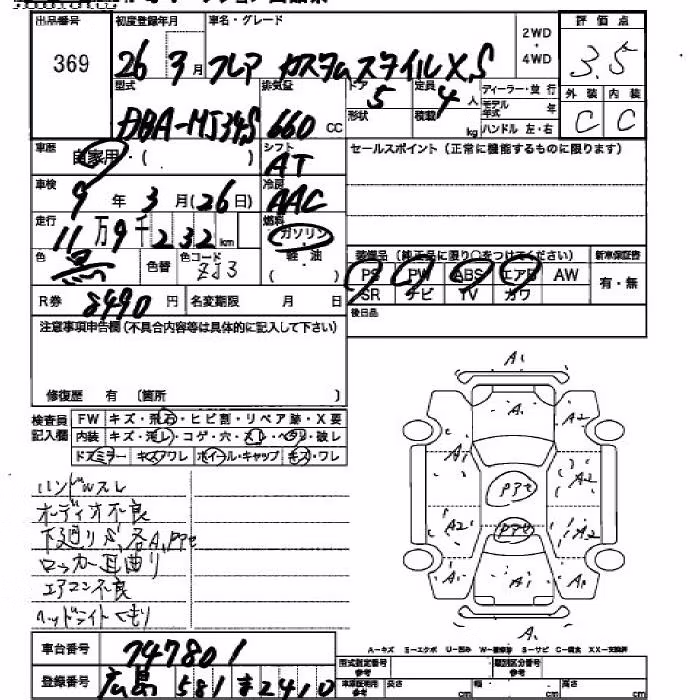 出品番号
初度登録年月
車名・グレード
2WD
・
4WD
評価点
369
26 9月
フレア カスタムスタイルXS
3.5
型式
排気量
ドア
5
定員
4人
ディーラー・並行
外装
内装
DBA-MJ34S
660 CC
形状
積載
kg
モデル年式
年
ハンドル 左・右
C
C
車歴
自家用・( )
シフト
AT
セールスポイント(正常に機能するものに限ります)
車検
9年3月(26日)
冷房
AAC
走行
11万9千232km
燃料
ガソリン
軽・油
( )
色
黒
色替
色コード
ZJ3
装備品(純正品に限り○をつけてください)
新車保証書
PS PW ABS エアB AW
有・無
SR ナビ TV カワ
R券
8490円
名変期限
月 日
後日品
注意事項申告欄(不具合内容等は具体的に記入して下さい)
修復歴 有 (箇所 )
検査員
記入欄
FW キズ・飛石・ヒビ割・リペア跡・X要
内装 キズ・汚レ・コゲ・穴・スレ・ベタリ・破レ
ドアミラー キズワレ ホイール・キャップ キズ・ワレ
ハンドルスレ
オーディオ不良
ロッカー耳曲り
エアコン不良
ヘッドライトくもり
A1
A1
A2
A1
A2
Pアセ
A2
A2
Pアセ
A1
A1
A1
A1
A-キズ E-エクボ U-凹み W-補修跡 S-サビ C-腐食 XX-交換済
車台番号
747801
登録番号
広島 581 ま2410
型式指定番号
参考
類別区分番号
参考
車検証明用
参考
長さ cm
幅 cm
高さ cm